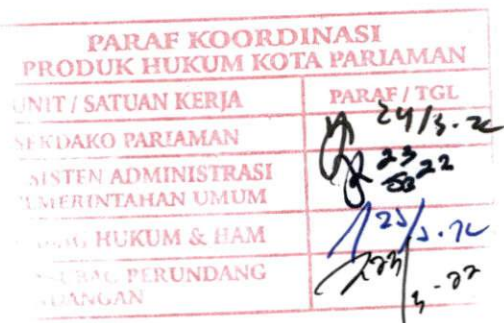 PARAF KOORDINASI
PRODUK HUKUM KOTA PARIAMAN
UNIT / SATUAN KERJA PARAF / TGL
SEKDAKO PARIAMAN 24/3-22
SISTEN ADMINISTRASI
EMERINTAHAN UMUM
HUKUM & HAM
PERUNDANG